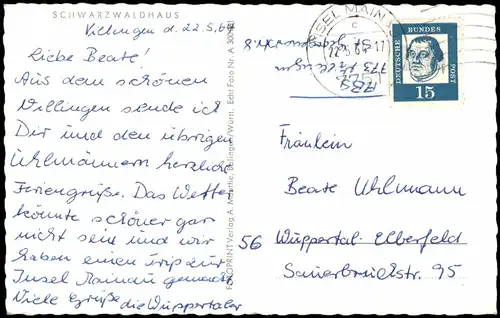 SCHWARZWALDHAUS
Villingen d. 22.5.64
Liebe Beate!
Aus dem schönen
Villingen sende ich
Dir und den übrigen
Uhlmännern herzliche
Feriengrüße. Das Wetter
könnte schöner gar
nicht sein und wir
haben einen Trip zur
Insel Mainau gemacht
Viele Grüße die Wuppertaler
FOTOPRINT Verlag A. Mauthe, Balingen/Württ. Echt Foto Nr. A
INSEL MAINAU
DEUTSCHE
BUNDES
POST
15
Fräulein
Beate Uhlmann
56 Wuppertal-Elberfeld
Sauerbruchstr. 95